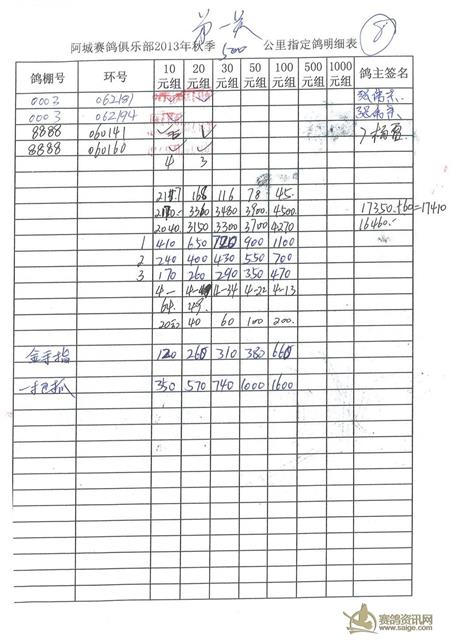 第一关
8
阿城赛鸽俱乐部2013年秋季 500 公里指定鸽明细表
鸽棚号 环号 10元组 20元组 30元组 50元组 100元组 500元组 1000元组 鸽主签名
0003 062181
0003 062194
8888 060141
8888 060160
4 3
168 116 78 45
3360 3480 3900 4500 17350+60=17410
2040 3150 3300 3700 4270 16460
1 410 650 720 900 1100
2 240 400 430 550 700
3 170 260 290 350 470
4- 4-34 4-22 4-13
64 49
40 60 100 200
金手指 120 260 310 380 660
一把抓 350 570 740 1000 1600
赛鸽资讯网
www.saige.com